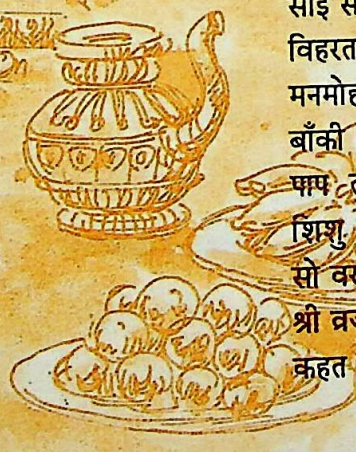 सोई स
विहरत
मनमोह
बाँकी
पाप
शिशु
सो
श्री
कहत